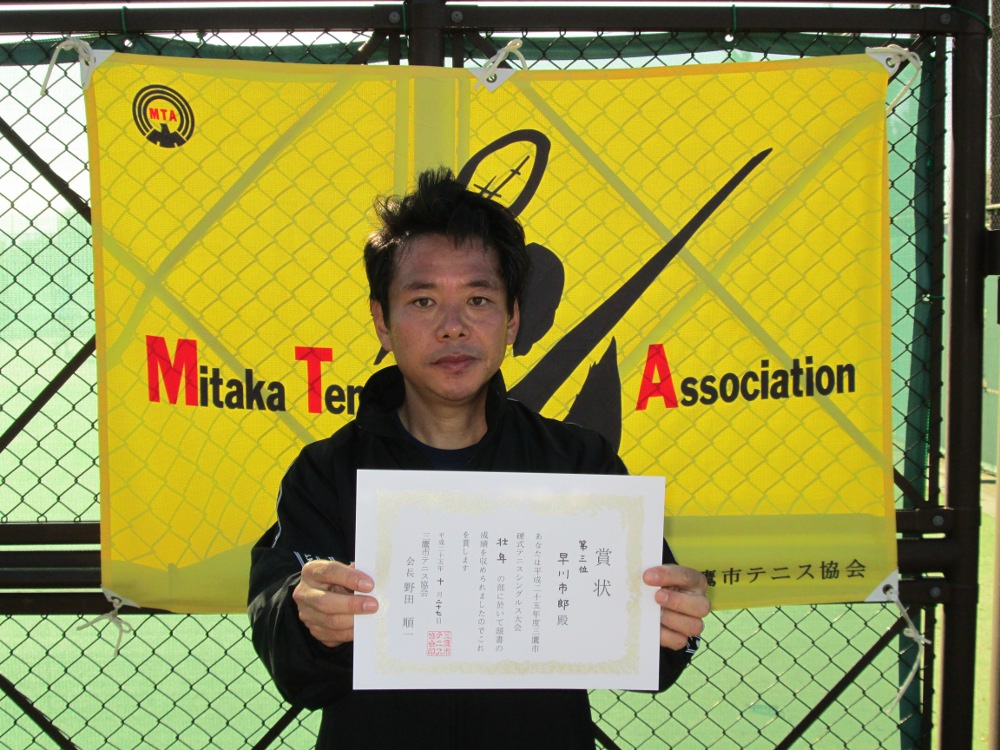 MTA
Mitaka Ten
Association
鷹市テニス協会
賞状
第三位
早川市郎殿
あなたは平成二十五年度三鷹市
硬式テニスシングルス大会
壮年の部に於いて頭書の
成績を収められましたのでこれ
を賞します
平成二十五年十月二十七日
三鷹市テニス協会
会長 野田 順一